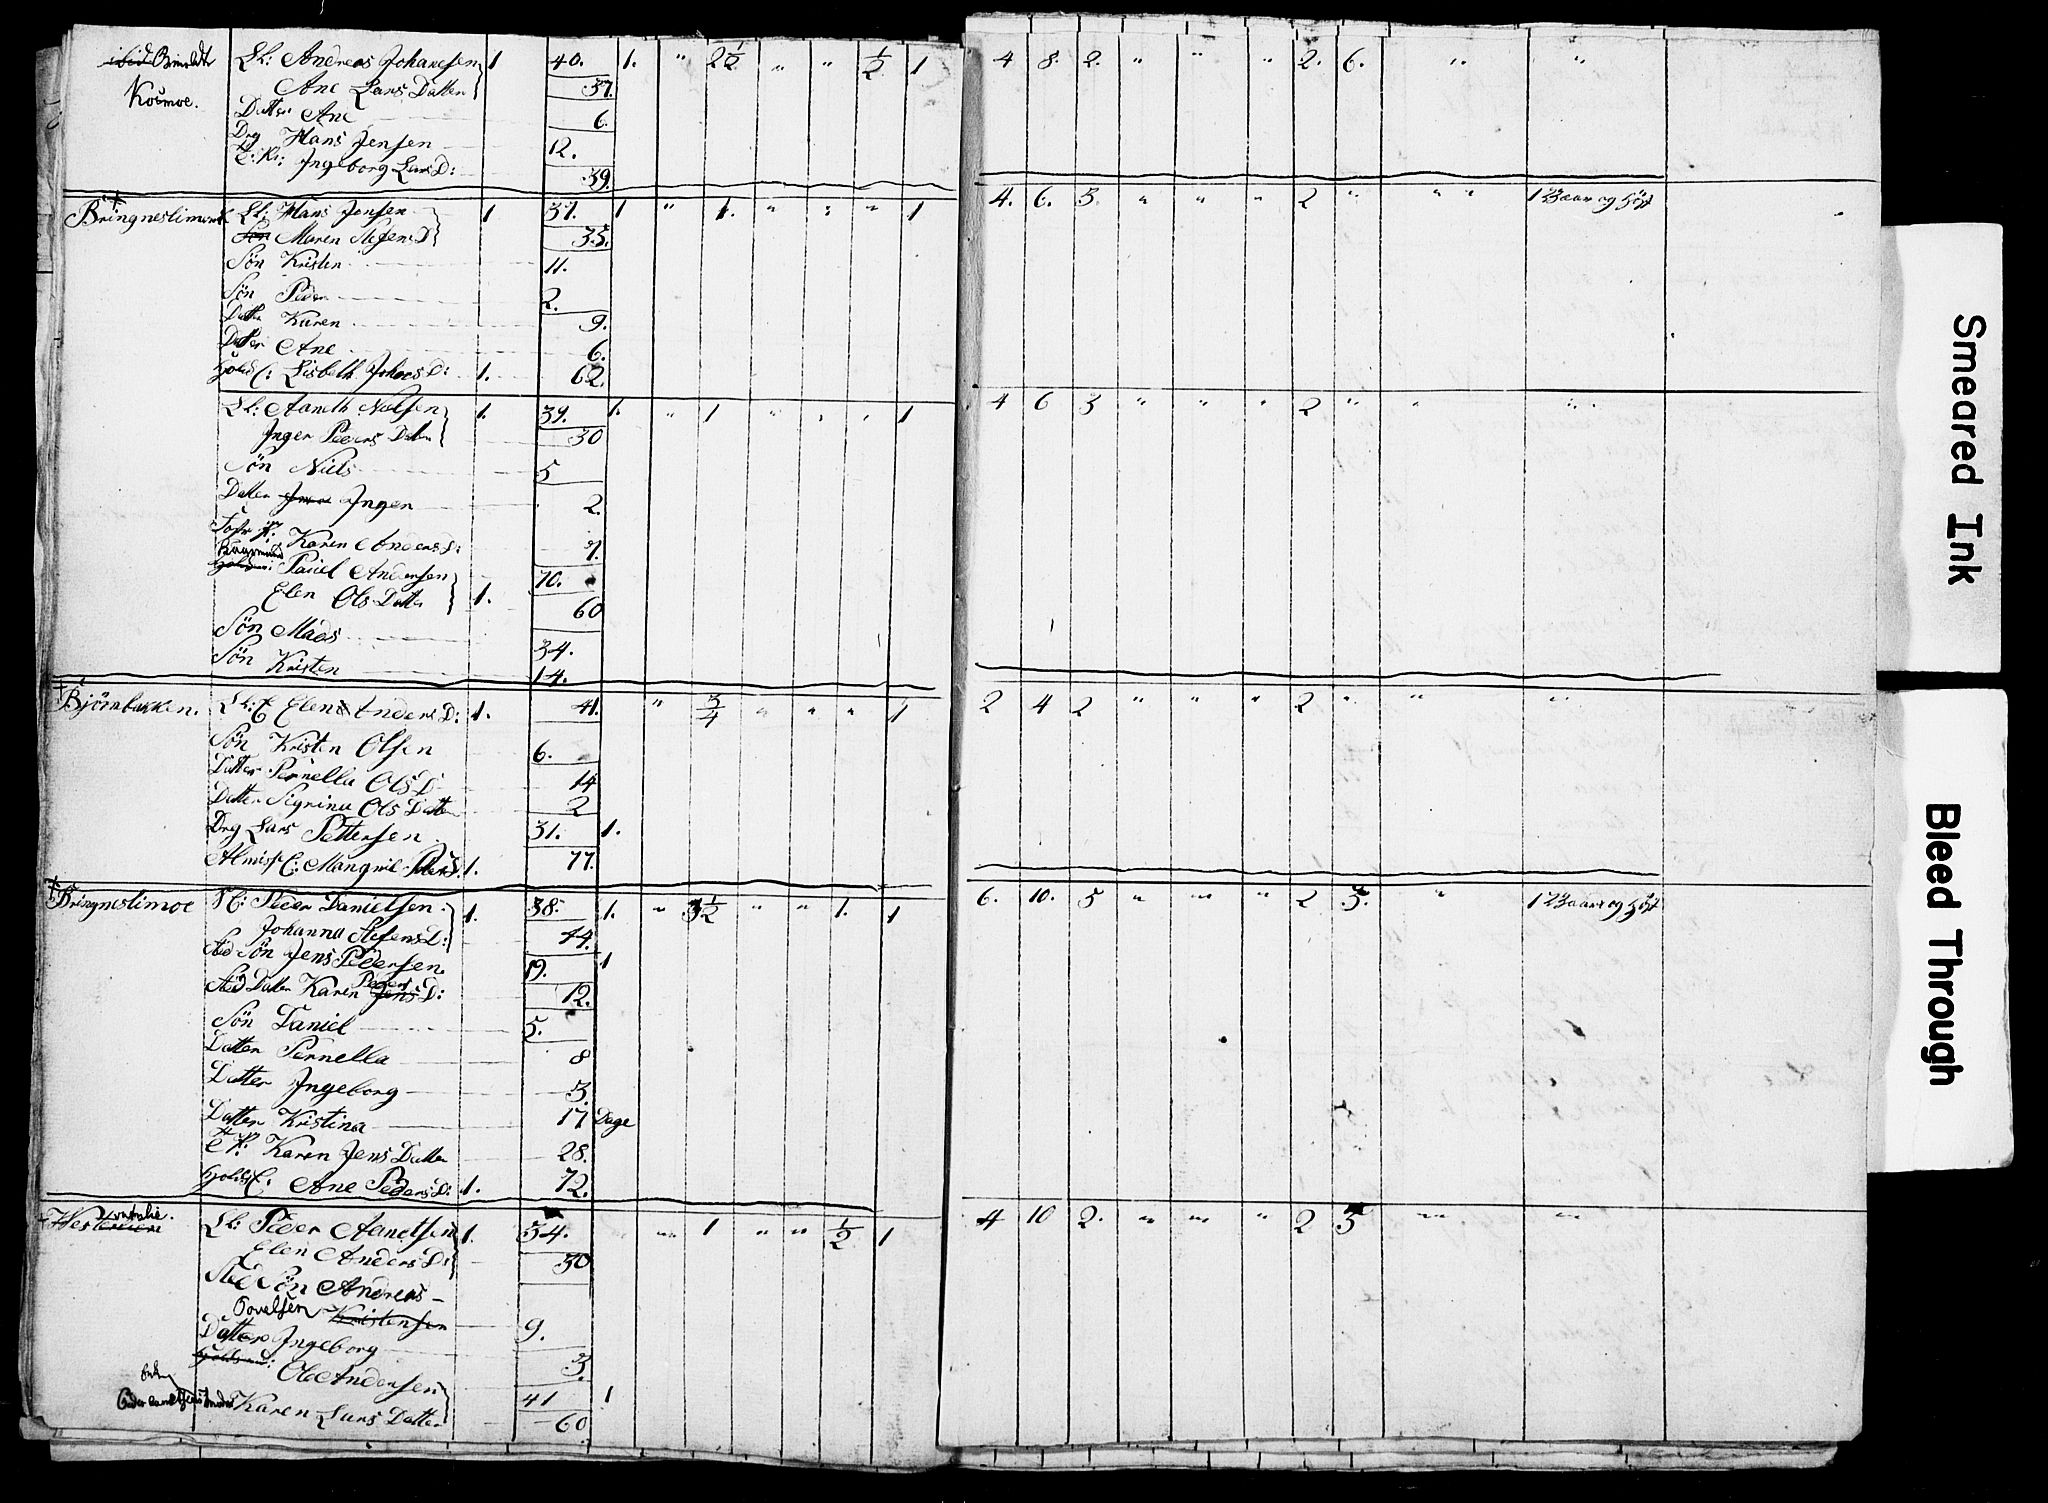 Lh: Andreas Johansen 1 40. 1. " 2½ " " ½ 1 4 8. 2. " " " 2. 6. " "
Kosmoe. Ane Lars Datter 37.
Datter Ane 6.
Drg Hans Jensen 12.
Ingeborg Lars D: 39.
Bringneslimark Lh: Hans Jensen 1 37. 1 " 1. " " " 1 4. 6. 3. " " " 2 " " "
Maren D 35.
Sön Kristen 11.
Sön Peder 2.
Datter Karen 9.
Datter Ane 6.
Lisbeth Johans D: 1. 62.
Lh: Aaneth Nielsen 1. 39. 1. " 1 " " " 1 4 6 3 " " " 2 " " "
Inger Peders Datter 30
Sön Niels 5
Datter Inger 2.
Karen Anders D: 7.
Povel Andersen 70.
Elen Ols Datter 1. 60
Sön Mads 34.
Sön Kristen 14.
Björnbakken. Elen Anders D: 1. 41. " ¾ " " " 1 2 4 2 " " " 2 " " "
Sön Kristen Olsen 6.
Datter Pernella Ols D 14
Datter Sigrina Ols Datter 2
Drg Lars Pettersen 31. 1.
Almisse 1. 77.
Bringneslimoe Peder Danielsen 1. 38. 1. " 3½ " " 1. 1 6. 10. 5 " " " 2 3. "
Johanna D: 44.
Sted Sön Jens Pedersen 19. 1
Sted Datter Karen Peders D: 12.
Sön Daniel 5.
Datter Pernella 8
Datter Ingeborg 3.
Datter Kristina 17 Dage
Karen Jens Datter 28.
Ane Peders D: 1. 72.
Lh: Peder Aanetsen 1. 34. " 1 " " ½ 1 4 10 2. " " " 2 3 " "
Elen Anders D: 30
Sted Sön Andreas
Povelsen Kristensen 9.
Datter Ingeborg 3.
Ole Andersen 41 1
Karen Lars Datter 60
Smeared Ink
Bleed Through